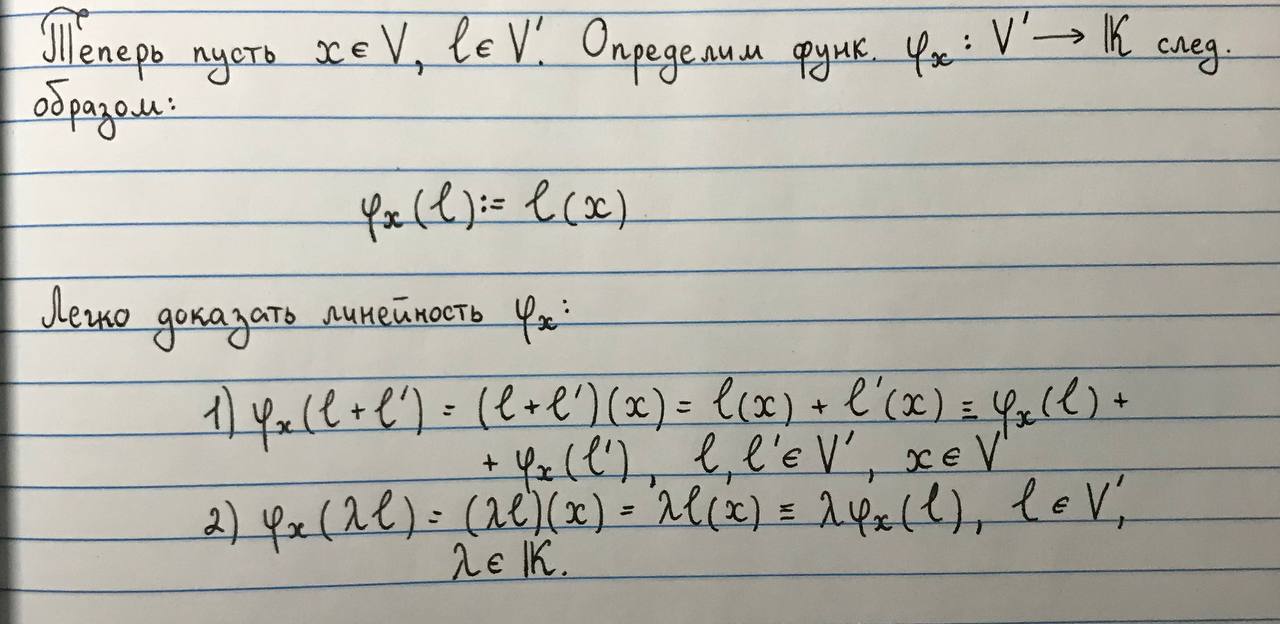 Теперь пусть x ∈ V, ℓ ∈ V′. Определим функ. φₓ : V′ → 𝕂 след.
образом:
φₓ(ℓ) := ℓ(x)
Легко доказать линейность φₓ:
1) φₓ(ℓ + ℓ′) = (ℓ + ℓ′)(x) = ℓ(x) + ℓ′(x) ≡ φₓ(ℓ) +
+ φₓ(ℓ′), ℓ, ℓ′ ∈ V′, x ∈ V
2) φₓ(λℓ) = (λℓ)(x) = λℓ(x) ≡ λφₓ(ℓ), ℓ ∈ V′,
λ ∈ 𝕂.